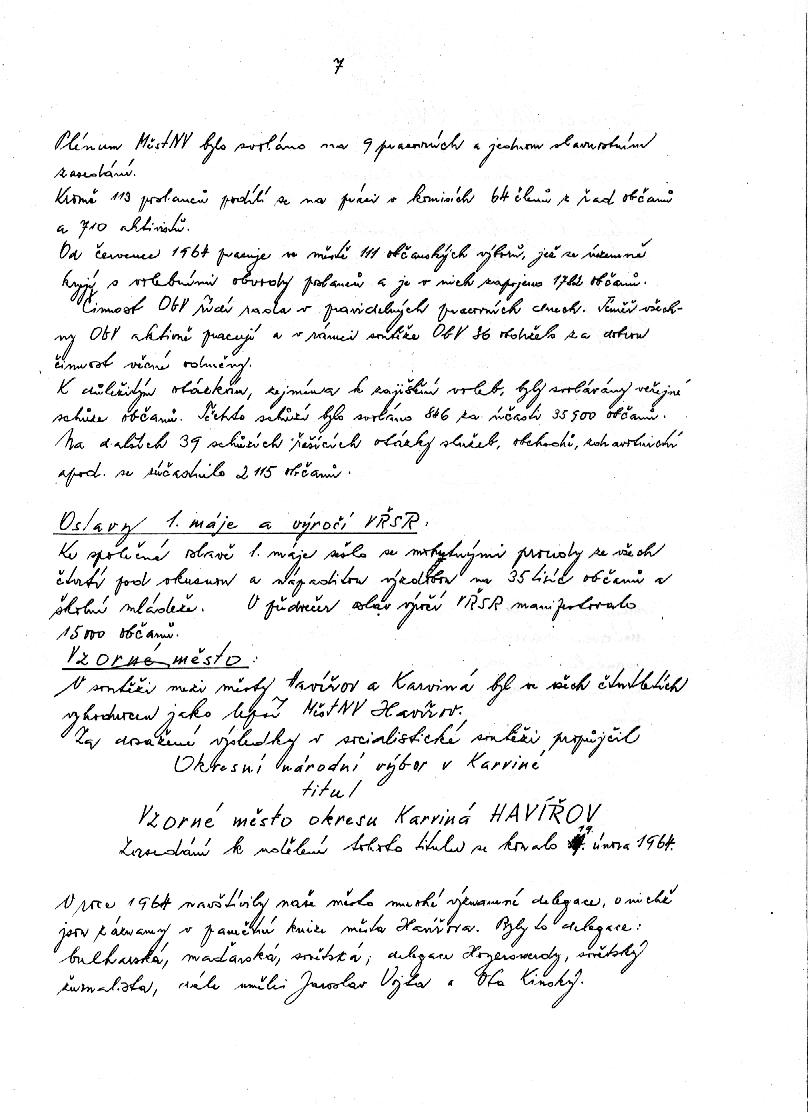 7
Plénum MěstNV bylo svoláno na 9 pracovních a jednom slavnostním
zasedání.
Kromě 113 poslanců podílí se na práci v komisích 64 členů z řad občanů
a 710 aktivistů.
Od července 1964 pracuje ve městě 111 občanských výborů, jež se územně
kryjí s volebními obvody poslanců a je v nich zapojeno občanů.
Činnost ObV řídí rada v pravidelných pracovních dnech. Téměř všech-
ny ObV aktivně pracují a v rámci soutěže ObV 86 obdrželo za dobrou
činnost věcné odměny.
K důležitým otázkám, zejména k zajištění voleb, byly svolávány veřejné
schůze občanů. Těchto schůzí bylo svoláno 846 za účasti 35 900 občanů.
Na dalších 39 schůzích řešících otázky služeb, obchodů, zdravotnictví
apod. se zúčastnilo 2 115 občanů.
Oslavy 1. máje a výročí VŘSR:
Ke společné oslavě 1. máje sešlo se mohutnými proudy ze všech
čtvrtí pod vkusnou a nápaditou výzdobou na 35 tisíc občanů a
školní mládeže. V předvečer oslav výročí VŘSR manifestovalo
15 000 občanů.
Vzorné město:
V soutěži mezi městy Havířov a Karviná byl ve všech čtvrtletích
vyhodnocen jako lepší MěstNV Havířov.
Za dosažené výsledky v socialistické soutěži propůjčil
Okresní národní výbor v Karviné
titul
Vzorné město okresu Karviná HAVÍŘOV
Zasedání k udělení tohoto titulu se konalo 19. února 1964.
V roce 1964 navštívily naše město mnohé významné delegace, o nichž
jsou záznamy v pamětní knize města Havířova. Byly to delegace:
bulharská, maďarská, sovětská; delegace Hoyerswerdy, sovětský
žurnalista, dále umělci Jaroslav Vojta a Ota Kinský.